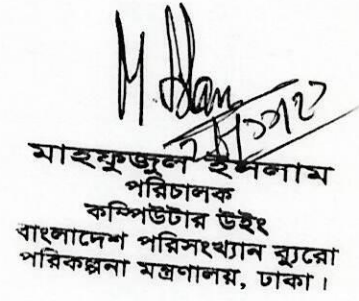 M. Islam
মাহফুজুল ইসলাম
পরিচালক
কম্পিউটার উইং
বাংলাদেশ পরিসংখ্যান ব্যুরো
পরিকল্পনা মন্ত্রণালয়, ঢাকা।